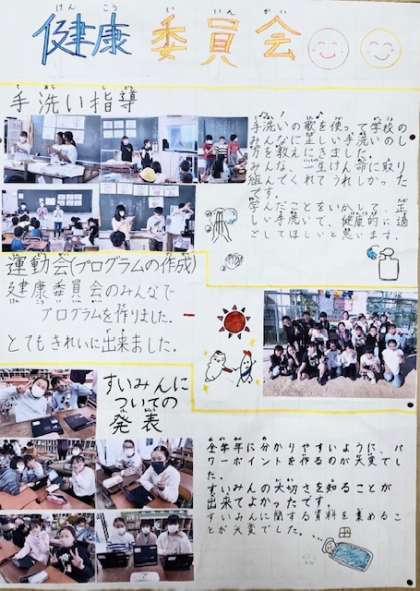 けんこう いいんかい
健康 委員会
手洗い指導
手洗いの歌を使って学校の
みんなに正しい手洗いのし
方を教えにきました。
みんな、一生けん命に取り
組んでくれてうれしかった
です。
学んだことをいかして、正
しい手洗いで、健康的に過
ごしてほしいと思います。
運動会(プログラムの作成)
健康委員会のみんなで
プログラムを作りました。
とてもきれいに出来ました。
すいみんに
ついての
発表
全学年に分かりやすいように、パ
ワーポイントを作るのが大変でし
た。
すいみんの大切さを知ることが
出来てよかったです。
すいみんに関する資料を集めるこ
とが大変でした。